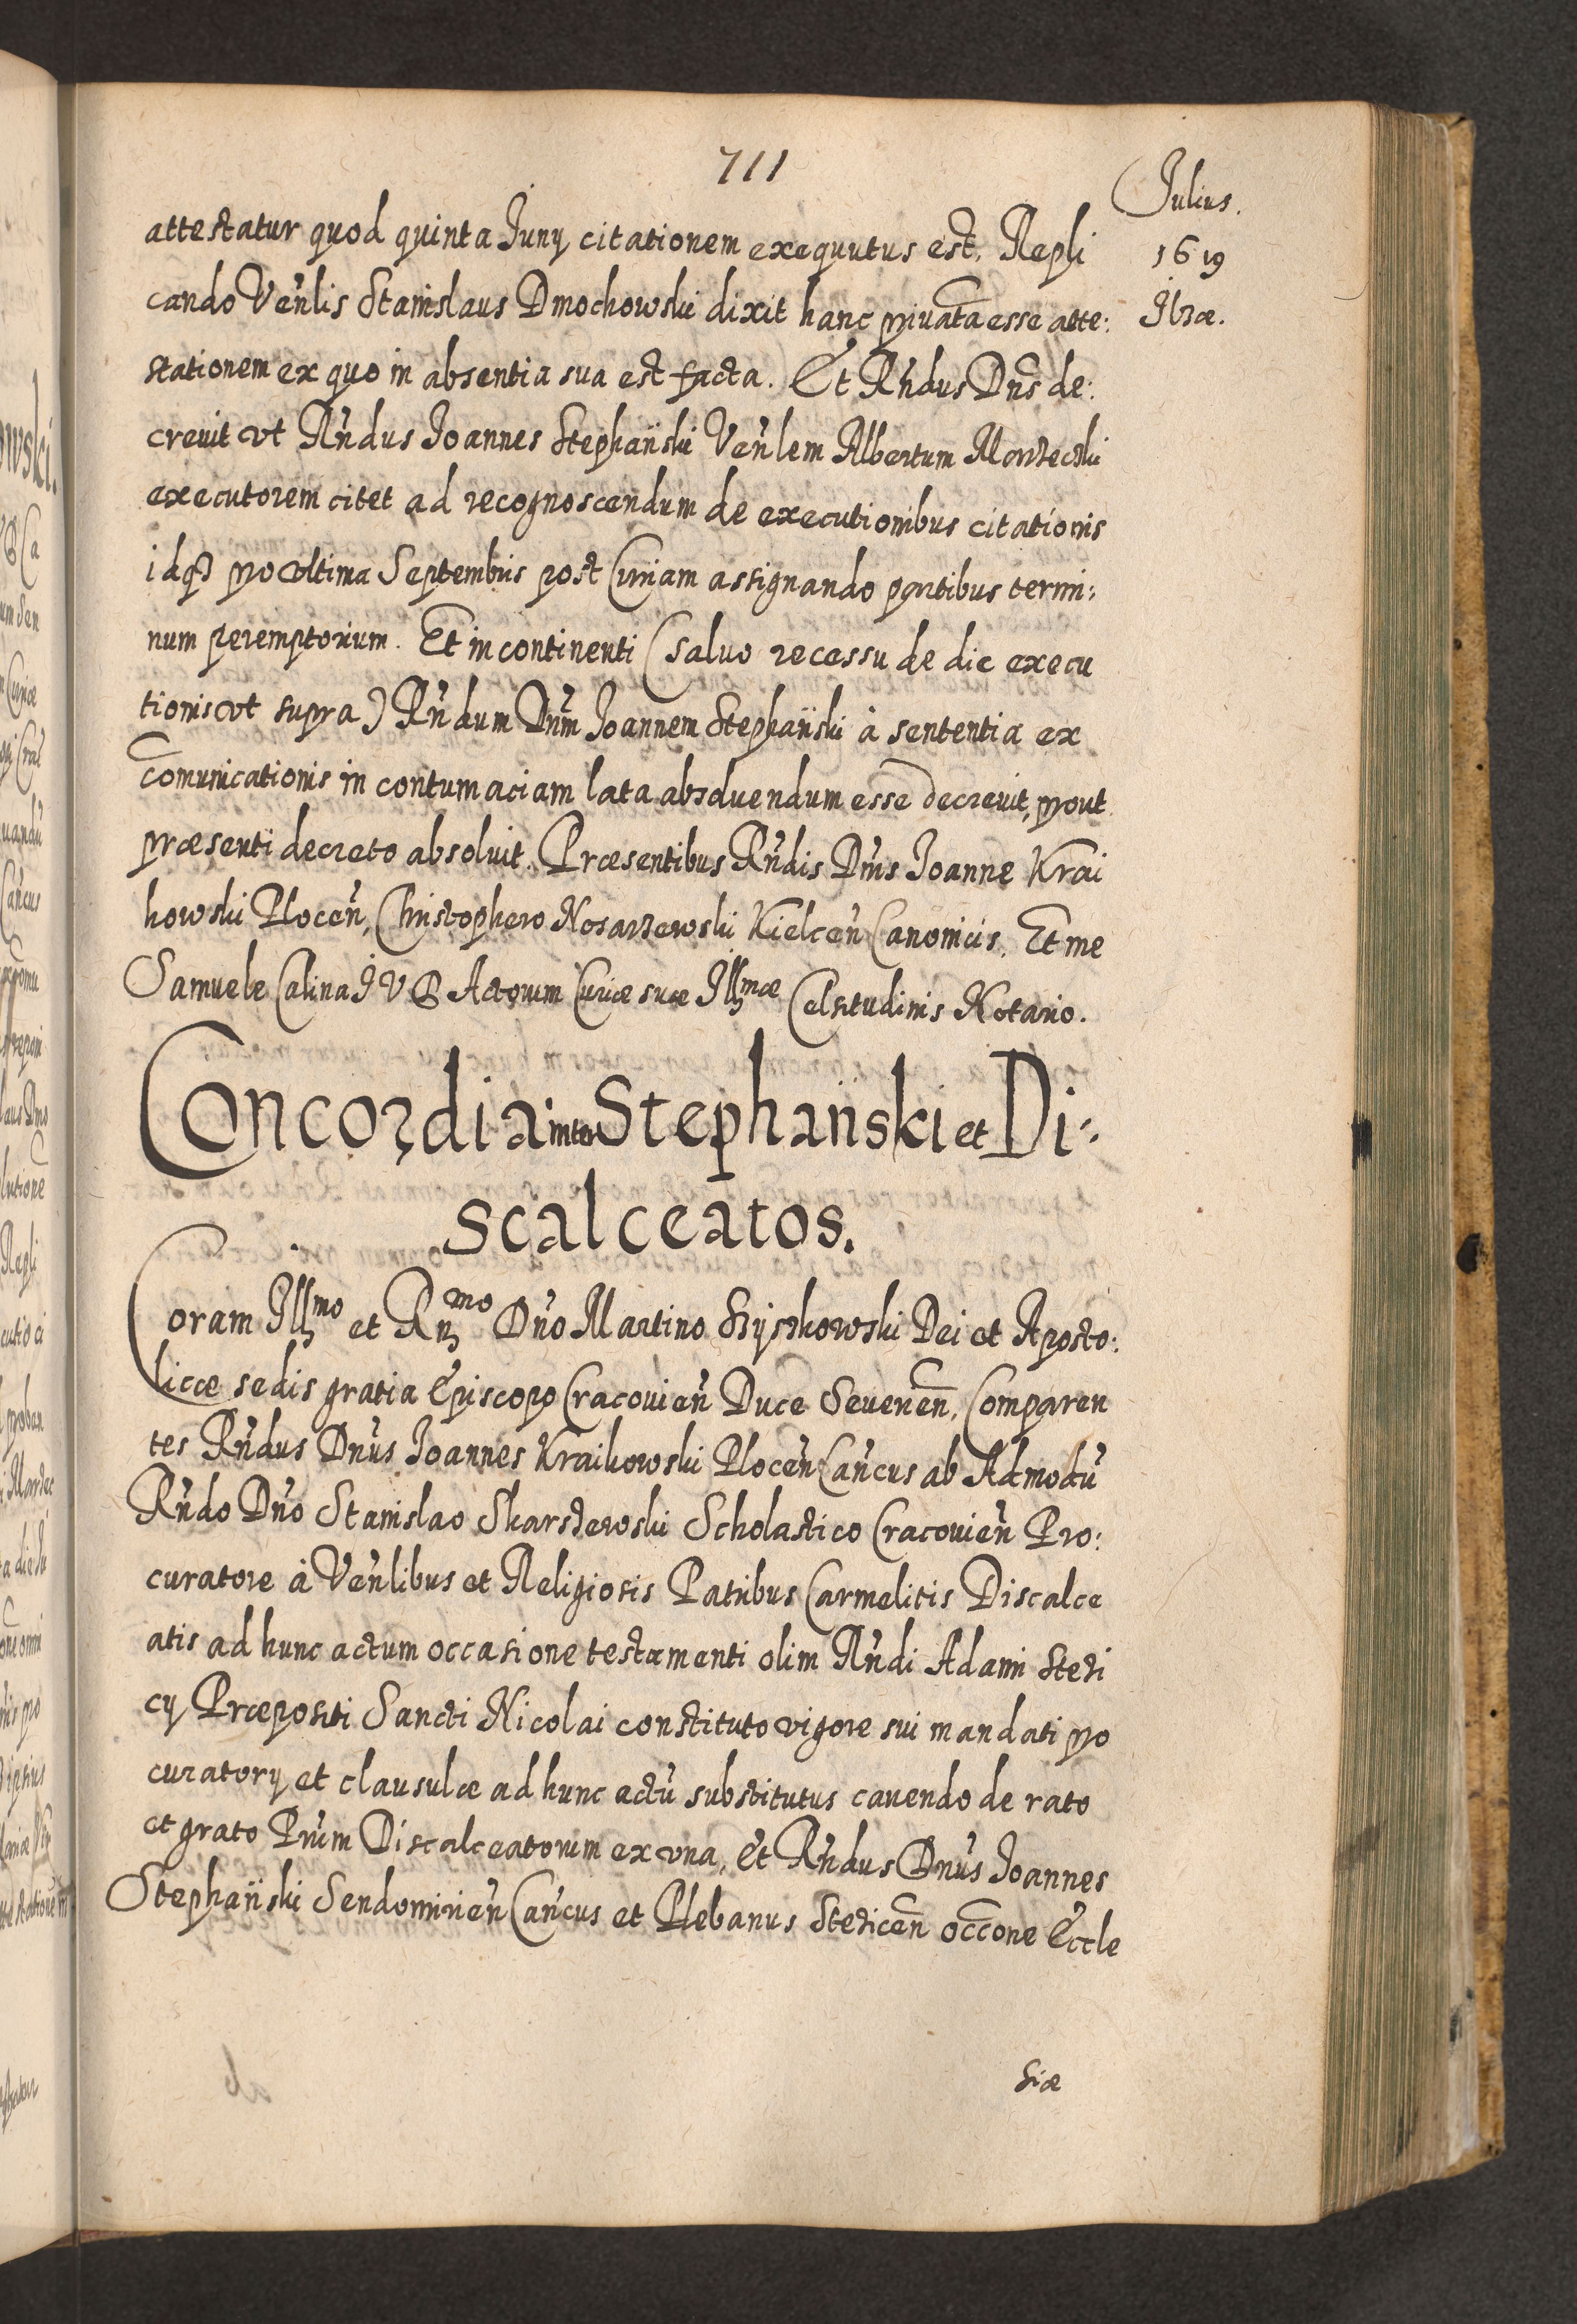 711
Julius.
1619
Ilzae.
attestatur quod quinta Juny citationem exequutus est. Repli
cando Veńlis Stanislaus Dmochowski dixit hanc privatã esse atte:
stationem ex quo in absentia sua est facta. Et Rńdus Dńs de:
crevit vt Rńdus Joannes Stephański Veńlem Albertum Mordecki
executorem citet ad recognoscendum de executionibus citationis
idq3 pro vltima Septembris post Curiam assignando partibus termi:
num peremptorium. Et in continenti (salvo recessu de die execu
tionis vt supra) Rńdum Dńm Joannem Stephański à sententia ex
cõmunicationis in contumaciam lata absolvendum esse decrevit, prout
præsenti decreto absolvit. Præsentibus Rńdis Dńis Joanne Krai
kowski Plocen̄, Christophero Nosarzewski Kielcen̄ Canonicis. Et me
Samuele Calina J V D Actorum Curiæ suæ Illmæ Celsitudinis Notario.
Concordia inter Stephański et Di:
scalceatos.
Coram Illmo et Rmo Dńo Martino Szyszkowski Dei et Aposto:
licæ sedis gratia Episcopo Cracovien̄ Duce Severien̄, Comparen
tes Rńdus Dńus Joannes Kraikowski Plocen̄ Cańcus ab Admodū
Rńdo Dńo Stanislao Skarszewski Scholastico Cracovien̄ Pro:
curatore à Veńlibus et Religiosis Patribus Carmelitis Discalce
atis ad hunc actum occasione testamenti olim Rńdi Adami Stezi
cy Præpositi Sancti Nicolai constituto vigore sui mandati pro
curatory et clausulæ ad hunc actū substitutus cavendo de rato
et grato Prūm Discalceatorum ex vna, Et Rńdus Dńus Joannes
Stephański Sendomirien̄ Cańcus et Plebanus Stezicen̄ occõne Eccle
siæ